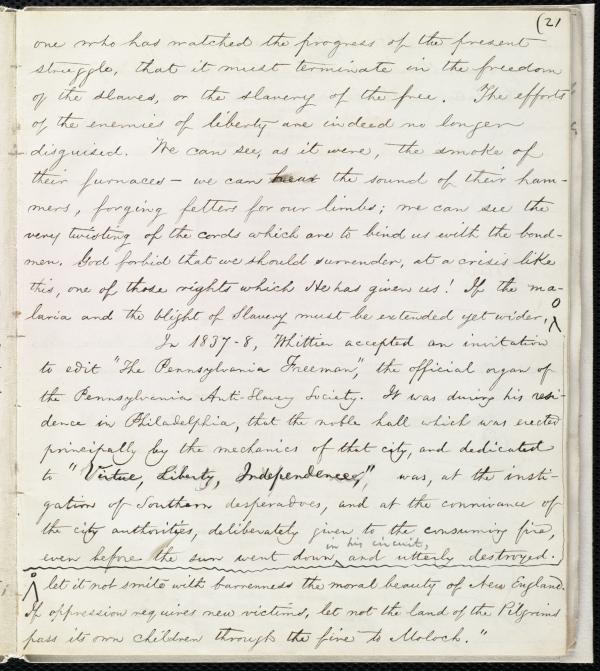 (21
one who has watched the progress of the present
struggle, that it must terminate in the freedom
of the slaves, or the slavery of the free. The efforts
of the enemies of liberty are indeed no longer
disguised. We can see, as it were, the smoke of
their furnaces — we can hear the sound of their ham-
mers, forging fetters for our limbs; we can see the
very twisting of the cords which are to bind us with the bond-
men. God forbid that we should surrender, at a crisis like
this, one of those rights which He has given us! If the ma-
laria and the blight of Slavery must be extended yet wider,
In 1837-8, Whittier accepted an invitation
to edit "The Pennsylvania Freeman", the official organ of
the Pennsylvania Anti-Slavery Society. It was during his resi-
dence in Philadelphia, that the noble hall which was erected
principally by the mechanics of that city, and dedicated
to "Virtue, Liberty, Independence," was, at the insti-
gation of Southern desperadoes, and at the connivance of
the city authorities, deliberately given to the consuming fire,
in his circuit,
even before the sun went down, and utterly destroyed.
let it not smite with barrenness the moral beauty of New England.
If oppression requires new victims, let not the land of the Pilgrims
pass its own children through the fire to Moloch."